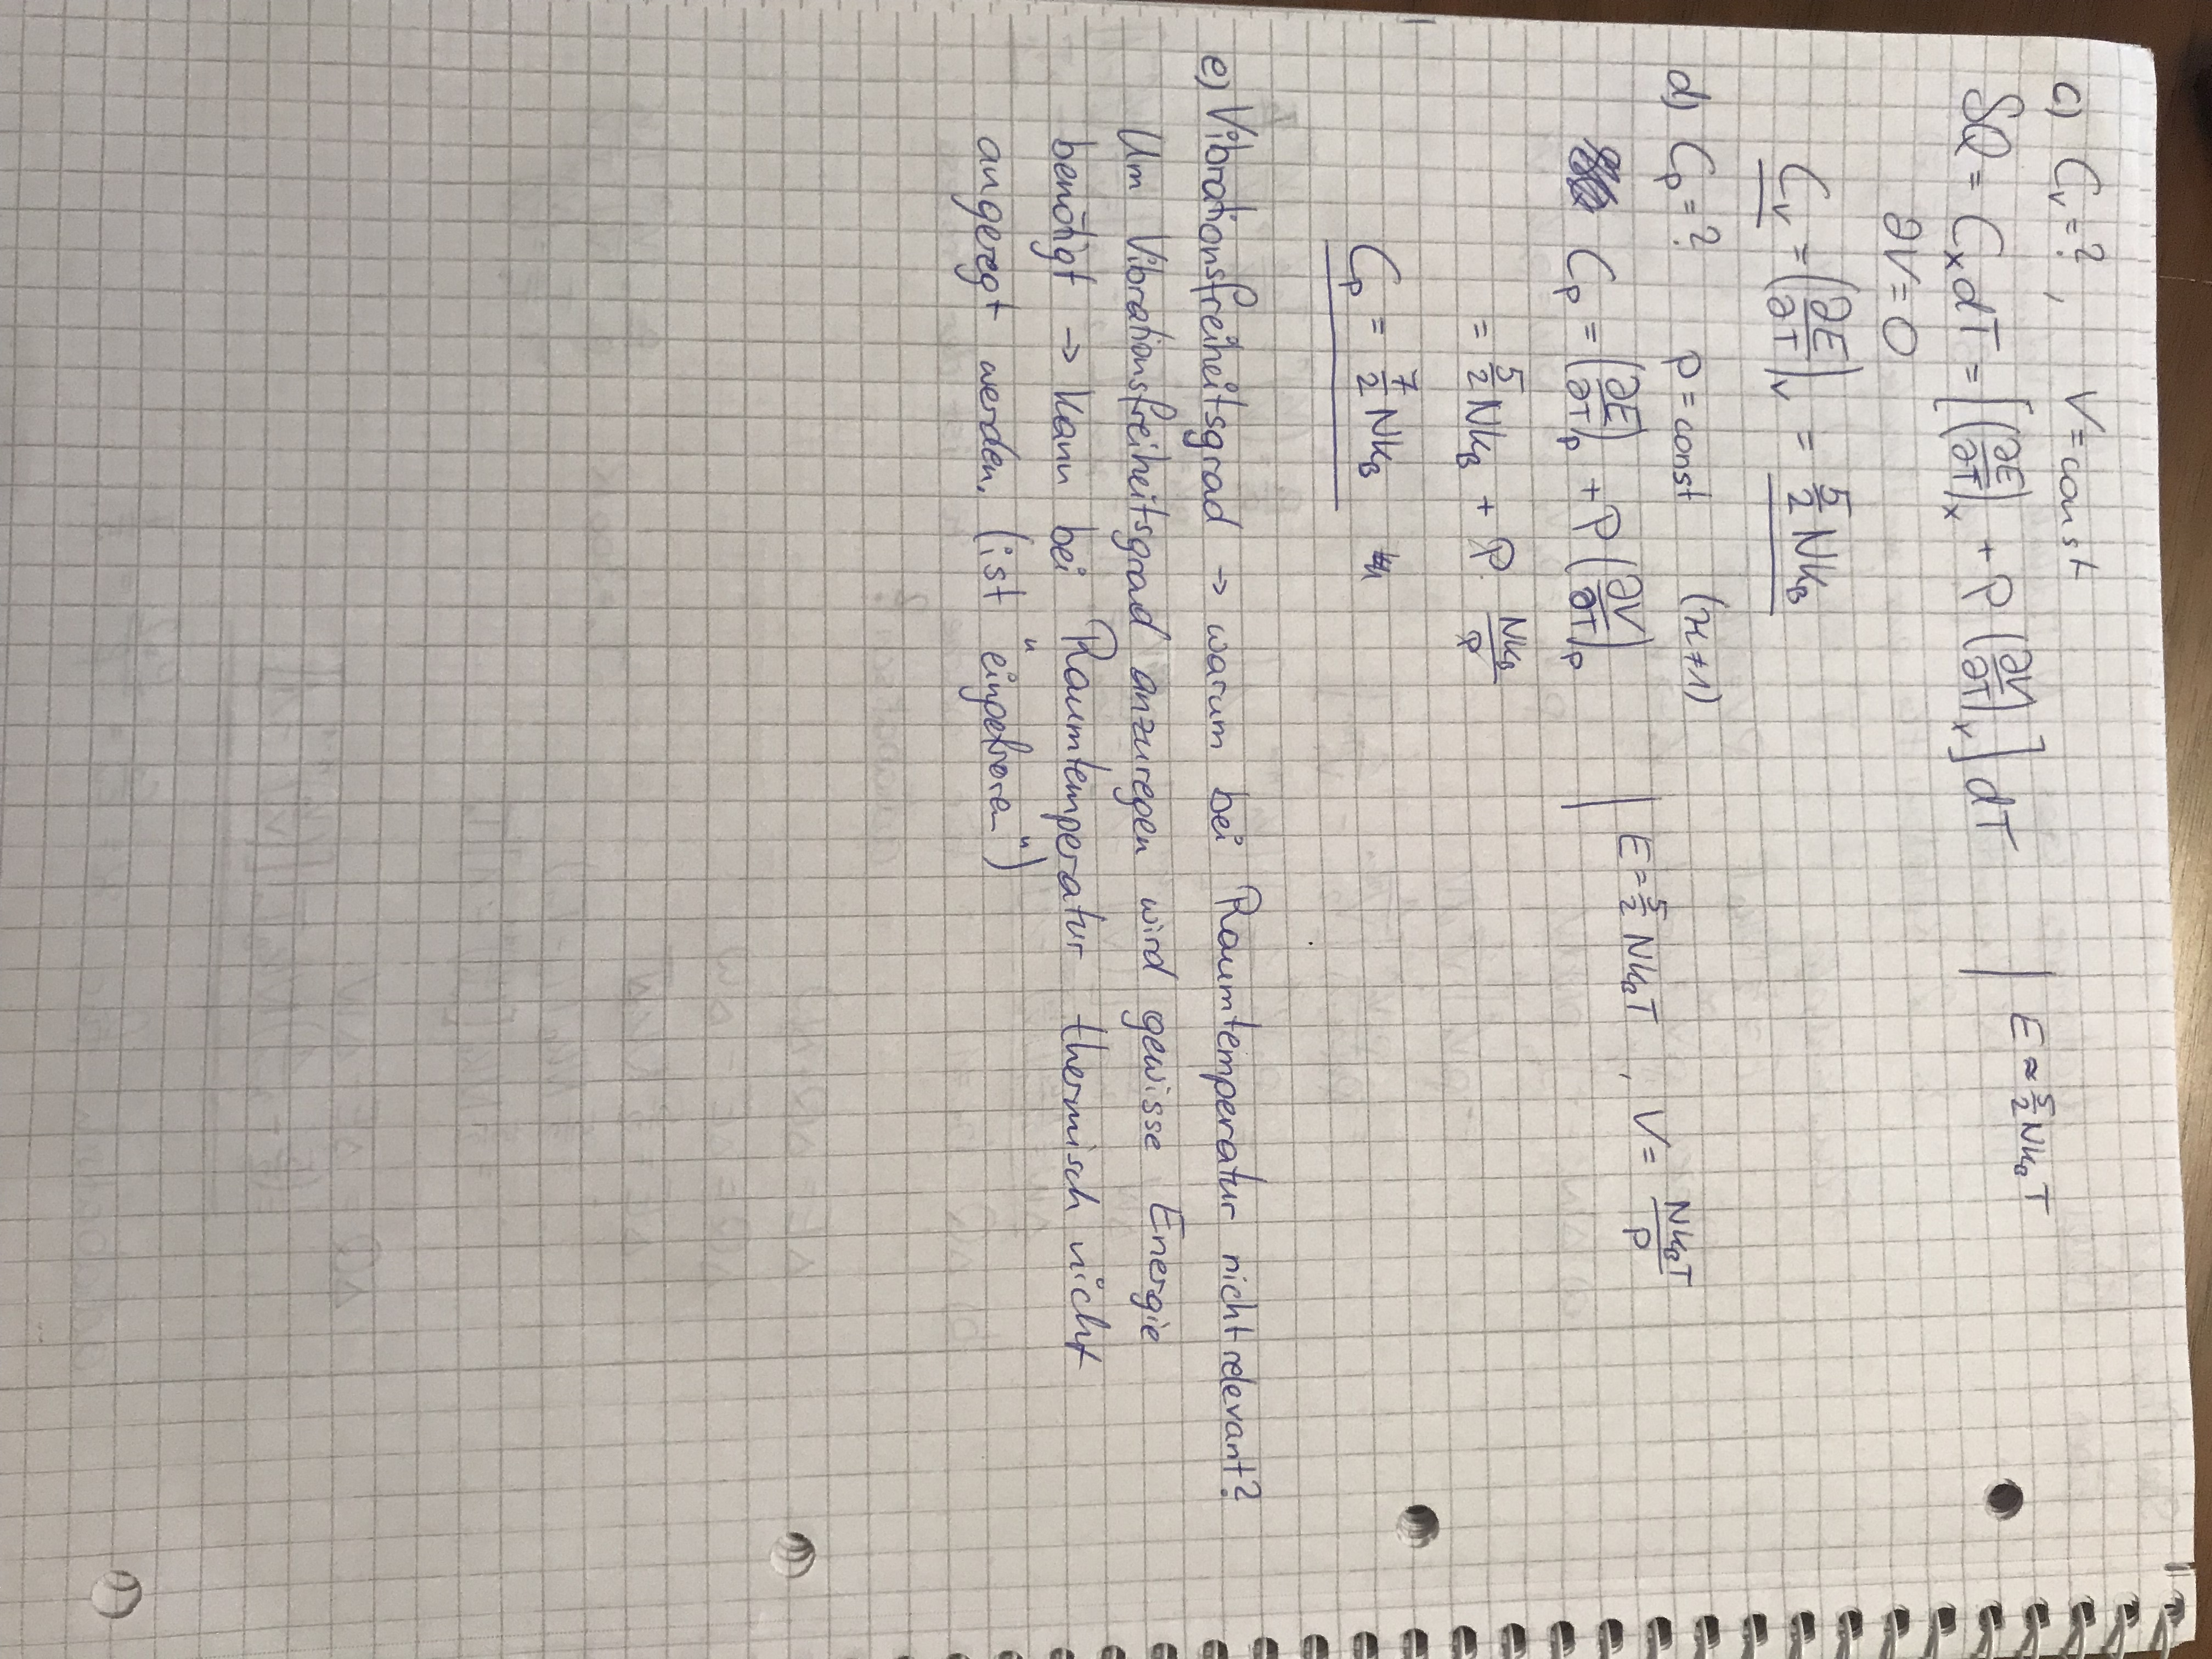 c) Cᵥ = ? , V = const
δQ = Cₓ dT = [(∂E/∂T)ₓ + P (∂V/∂T)ₓ] dT | E ≈ 5/2 Nk_BT
∂V = 0
Cᵥ = (∂E/∂T)ᵥ = 5/2 Nk_B
d) Cₚ = ? p = const (κ≠1)
Cₚ = (∂E/∂T)ₚ + P (∂V/∂T)ₚ | E = 5/2 Nk_BT , V = Nk_BT/P
= 5/2 Nk_B + P · Nk_B/P
Cₚ = 7/2 Nk_B
e) Vibrationsfreiheitsgrad → warum bei Raumtemperatur nicht relevant?
Um Vibrationsfreiheitsgrad anzuregen wird gewisse Energie
benötigt → kann bei Raumtemperatur thermisch nicht
angeregt werden. (ist "eingefroren")